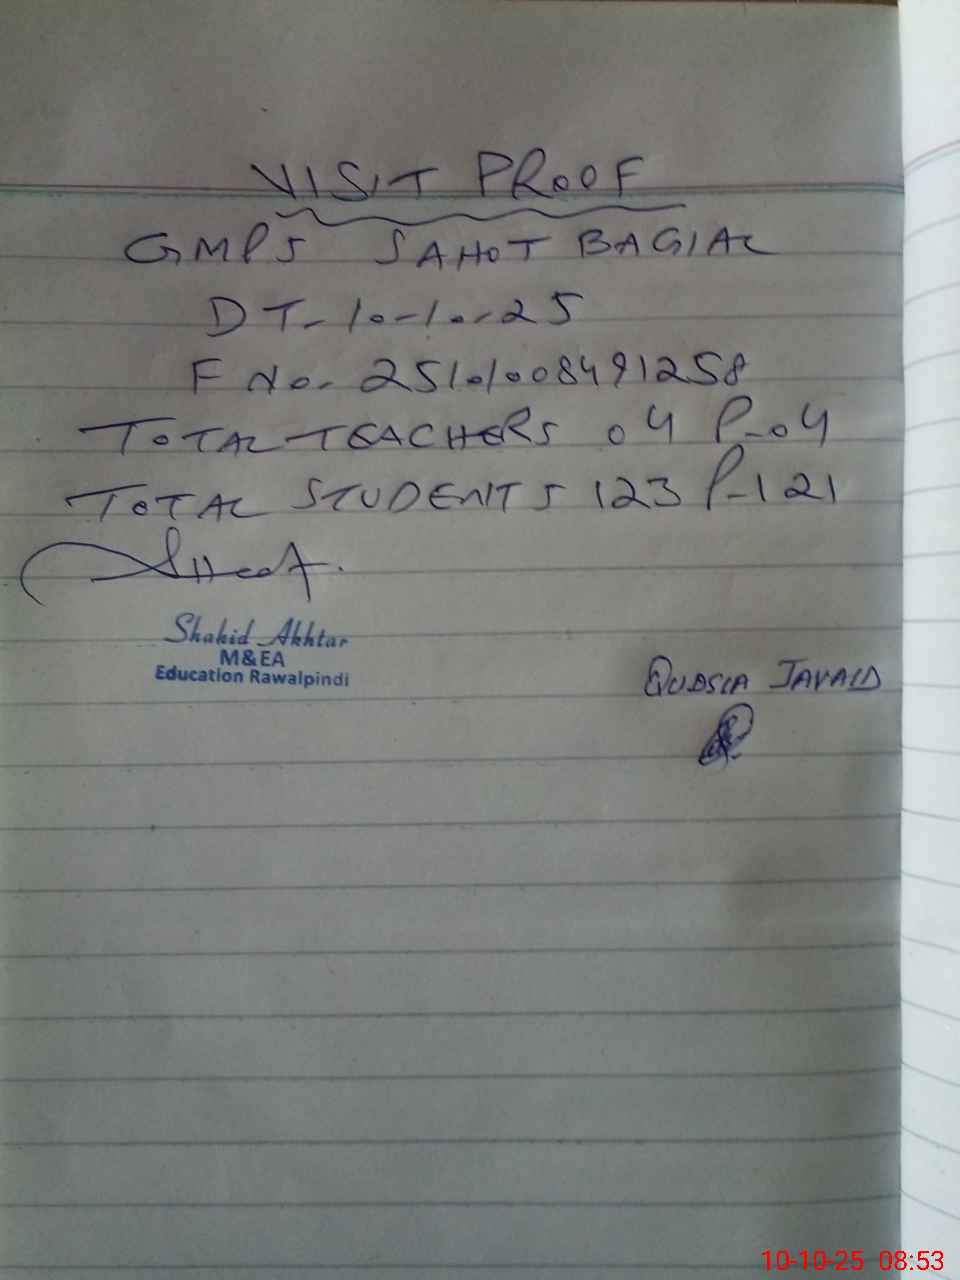 VISIT PROOF
GMPS SAHOT BAGIAL
DT-10-10-25
F No. 25101008491258
TOTAL TEACHERS 04 P-04
TOTAL STUDENTS 123 P-121
Shahid Akhtar
M&EA
Education Rawalpindi
QUDSIA JAVAID
10-10-25 08:53